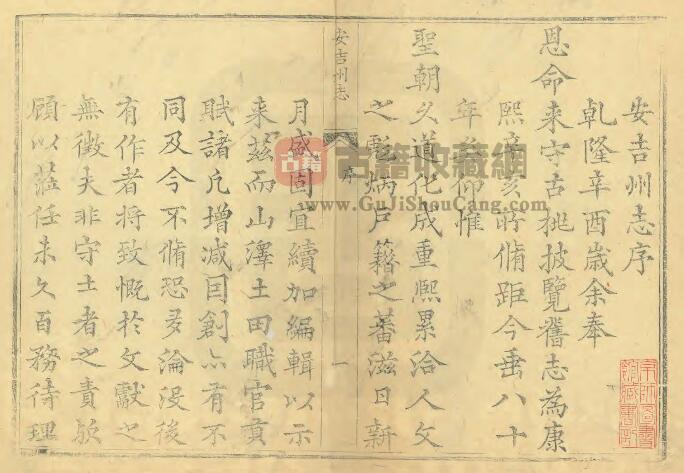 安吉州志序
乹隆辛酉歲余奉
恩命来守古桃披覽舊志為康
熙辛亥所脩距今垂八十
年仰惟
聖朝久道化成重熙累洽人文
之彪炳戶籍之蕃滋日新
安吉州志
序
一
月盛固宜續加編輯以示
来茲而山澤土田職官貢
賦諸凡增減因創亦有不
同及今不脩恐多淪没後
有作者将致慨於文獻之
無徵夫非守土者之責歟
顧以蒞任未久百務待理
古籍
古籍收藏网
www.GuJiShouCang.com